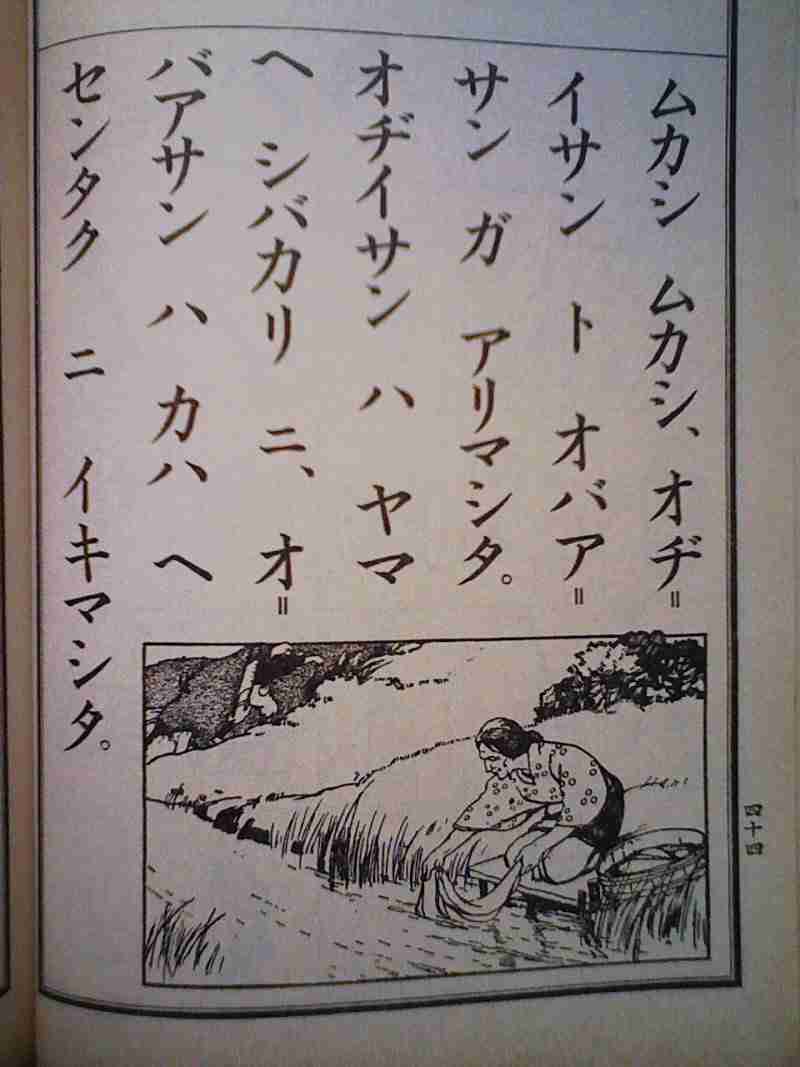 ムカシ ムカシ、オヂ＝
イサン ト オバア＝
サン ガ アリマシタ。
オヂイサン ハ ヤマ
ヘ シバカリ ニ、オ＝
バアサン ハ カハ ヘ
センタク ニ イキマシタ。
四十四